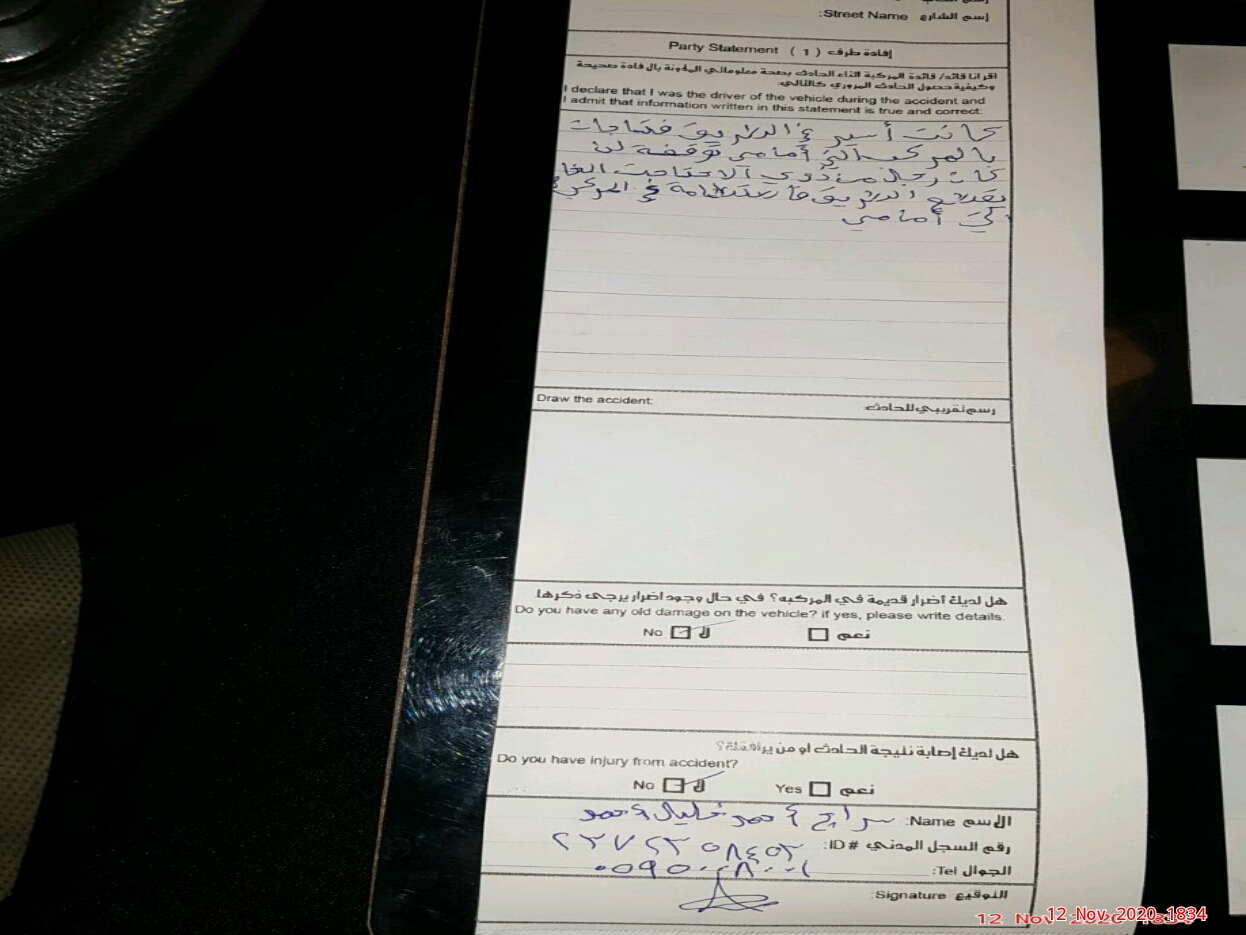 إسم الشارع Street Name:
إفادة طرف ( 1 ) Party Statement
اقر انا قائد/ قائدة المركبة اثناء الحادث بصحة معلوماتي المدونة بال فادة صحيحة
وكيفية حصول الحادث المروري كالتالي:
I declare that I was the driver of the vehicle during the accident and
I admit that information written in this statement is true and correct:
كانت أسير في الطريق فتفاجات
بالمركبه التي أمامي توقفة لان
كان رجل من ذوي الاحتاجت الخا
يقطع الطريق فا رتطامة في المركبة
التي أمامي
Draw the accident: رسم تقريبي للحادث
هل لديك أضرار قديمة في المركبه؟ في حال وجود اضرار يرجى ذكرها
Do you have any old damage on the vehicle? if yes, please write details.
نعم لا No
هل لديك إصابة نتيجة الحادث او من يرافقك؟
Do you have injury from accident?
نعم Yes لا No
الاسم Name: سراج أحمد خليل أحمد
رقم السجل المدني ID #: ٢٣٧٢٣٥٨٤٥٣
الجوال Tel:
التوقيع Signature:
12 Nov 2020 1834